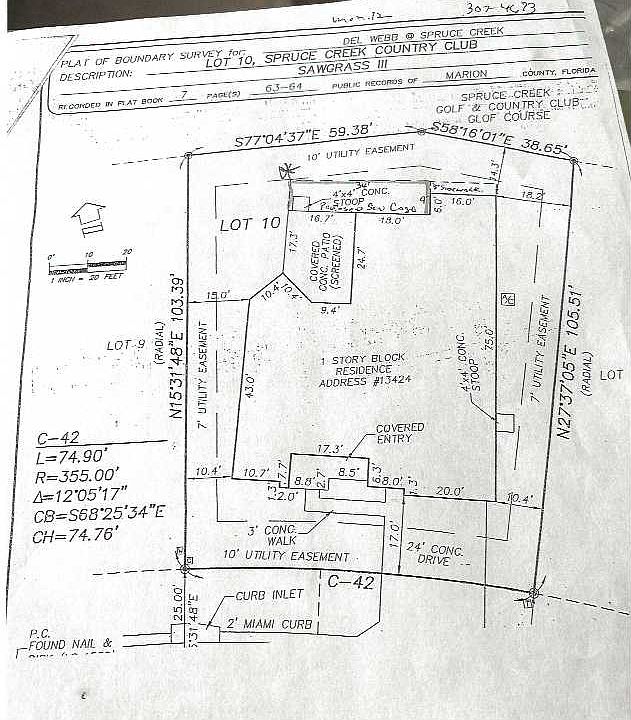 PLAT OF BOUNDARY SURVEY for: DEL WEBB @ SPRUCE CREEK
DESCRIPTION: LOT 10, SPRUCE CREEK COUNTRY CLUB
SAWGRASS III
RECORDED IN PLAT BOOK 7 PAGE(S) 63-64 PUBLIC RECORDS OF MARION COUNTY, FLORIDA
SPRUCE CREEK
GOLF & COUNTRY CLUB
GLOF COURSE
S77°04'37"E 59.38'
S58°16'01"E 38.65'
10' UTILITY EASEMENT
4'x4' CONC.
STOOP
16.7'
18.0'
5.0'
16.0'
18.2'
LOT 10
17.3'
COVERED
CONC. PATIO
(SCREENED)
24.7'
0' 10 20
1 INCH = 20 FEET
10.4'
9.4'
15.0'
A/C
N15°31'48"E 103.39'
(RADIAL)
LOT 9
7' UTILITY EASEMENT
43.0'
1 STORY BLOCK
RESIDENCE
ADDRESS #13424
75.0'
4'x4' CONC.
STOOP
7' UTILITY EASEMENT
N27°37'05"E 105.51'
(RADIAL)
LOT
C-42
L=74.90'
R=355.00'
Δ=12°05'17"
CB=S68°25'34"E
CH=74.76'
COVERED
ENTRY
17.3'
10.4'
10.7'
7.7'
8.8'
2.7'
8.5'
6.3'
8.0'
1.3'
2.0'
20.0'
10.4'
3' CONC.
WALK
17.0'
24' CONC.
DRIVE
10' UTILITY EASEMENT
C-42
25.00'
CURB INLET
2' MIAMI CURB
P.C.
FOUND NAIL &